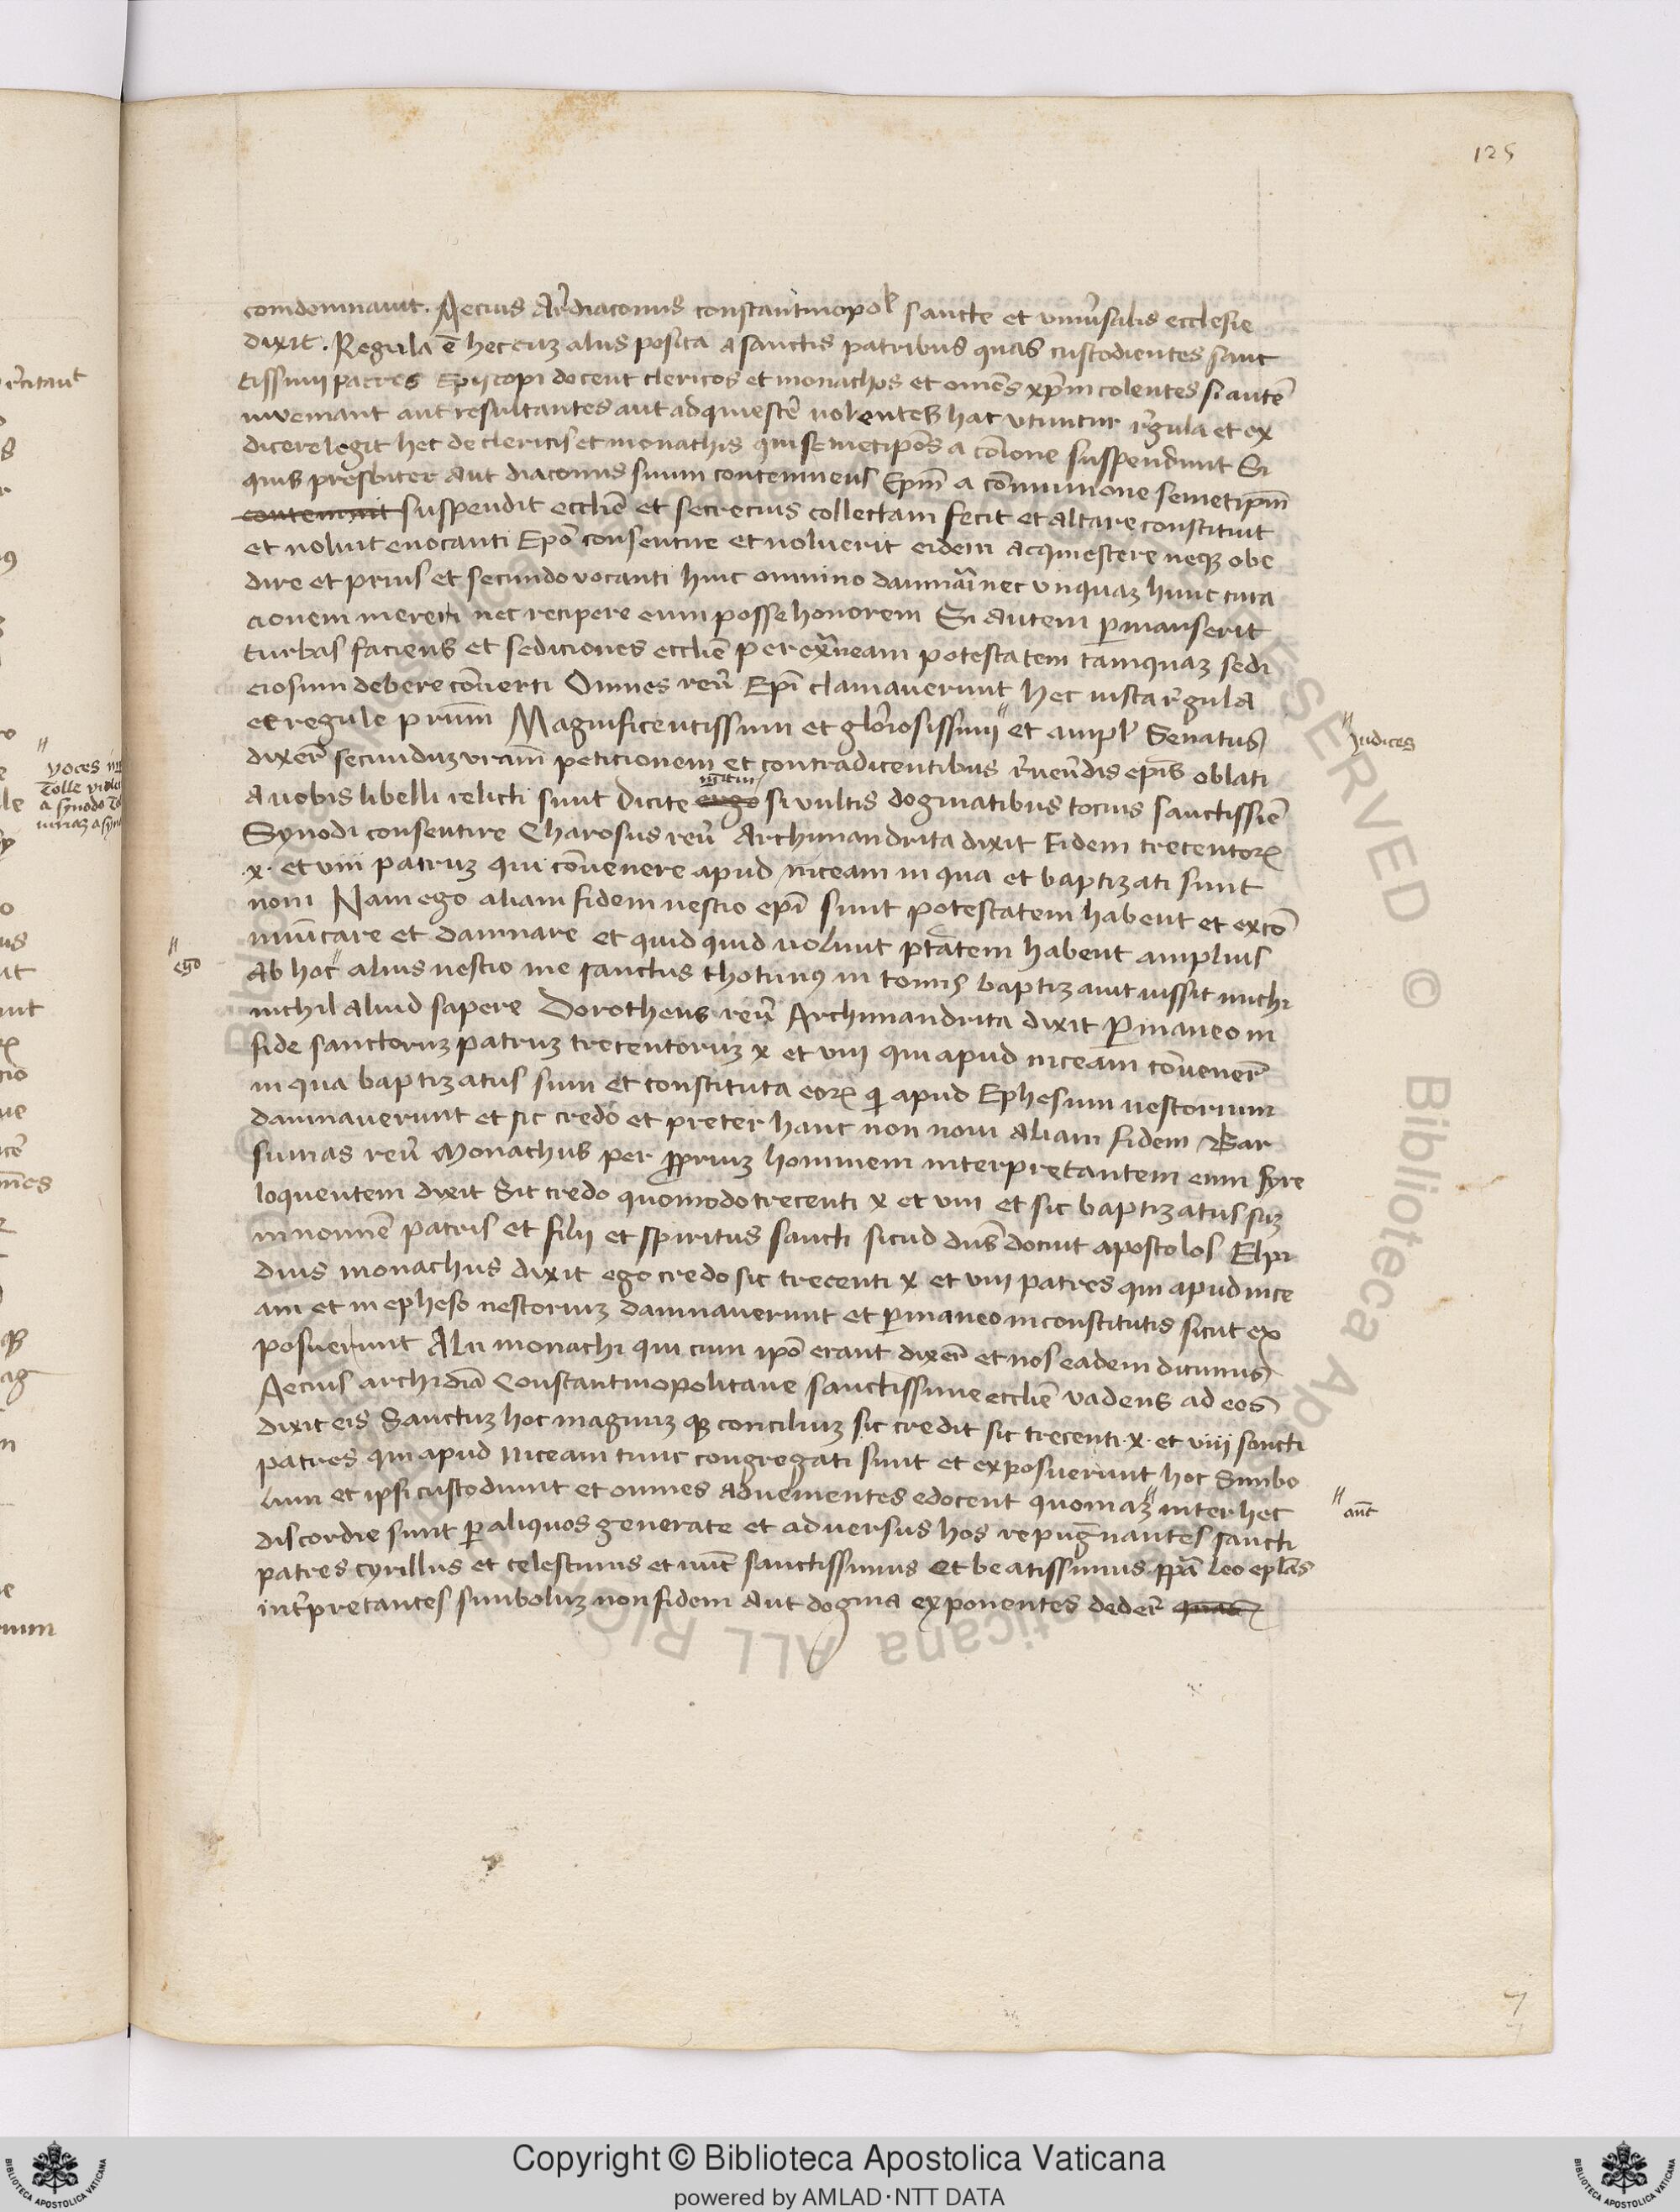 125
comdemnauit. Aecius Ar̄diaconus constantinopol̄ sancte et uniu̾salis ecclesie
dixit. Regula ē hec cuʒ aliis posita a sanctis patribus quas custodientes sanc
tissimi patres Episcopi docent clericos et monachos et om̄es xp̄m colentes si autē
inveniant aut resultantes aut adquiescer̄ uolentes hac utuntur r̄gula et ex
dicere legit hec de clericis et monachis qui semetip̄os a cōione suspendunt Si
quis presbiter aut diaconus suum contemnens Ep̄m a cōmunione semetip̄m
contemnit suspendit eccl̄ie et secrecius collectam fecit et altare constituit
et noluit euocanti Ep̄o consentire et noluerit eidem acquiescere neqʒ obe
dire et prius et secundo vocanti hunc omnino damnari nec unquaʒ hunc cura
cionem mereri nec recipere eum posse honorem Si autem p̄manserit
turbas faciens et sediciones eccl̄ie per ext̄neam potestatem tamquaʒ sedi
ciosum debere cōuerti Omnes reu̾ Ep̄i clamauerunt hec iusta r̄gula
et regule prūm Magnificentissimi et glōriosissimi " et ampl̄ Senatus
" Judices
dixer̄ secunduʒ ur̄am peticionem et contradicentibus r̄uer̄dis ep̄is oblati
igitur
a uobis libelli relicti sunt Dicite ergo si uultis dogmatibus tocius sanctissīe
Synodi consentire Charosus reu̾ Archimandrita dixit Eidem trecentorꝝ
.x. et viii patruʒ qui cōuenere apud niceam in qua et baptizati sunt
noui Nam ego aliam fidem nescio ep̄i sunt potestatem habent et excō
mūicare et damnare et quid quid uolunt ptātem habent amplius
" ego
ab hoc " alius nescio me sanctus thotinꝰ in tomis baptizauit iussit michi
nichil aliud sapere Dorotheus reu̾ Archimandrita dixit P̄maneo in
fide sanctoruʒ patruʒ trecentoruʒ x et viii qui apud niceam cōuener̄
in qua baptizatus sum et constituta eorꝝ qi apud Ephesum nestorium
damnauerunt et sic credo et preter hanc non noui aliam fidem Bar
sumas reu̾ Monachus per ꝓpriuʒ hominem interpretantem eum syre
loquentem dixit Sic credo quomodo trecenti x et viii et sic baptizatus suʒ
in nomīe patris et filij et spiritus sancti sicud dn̄s docuit apostolos Elpi
dius monachus dixit ego credo sic trecenti x et viii patres qui apud nice
am et in epheso nestoriuʒ damnauerunt et p̄maneo in constitutis sicut ex
posuerunt Alii monachi qui cum ip̄o erant dixer̄ et nos eadem dicimus
Aecius archidiā Constantinopolitane sanctissime eccl̄ie vadens ad eos
dixit eis Sanctuʒ hoc magnuʒ qʒ conciliuʒ sic credit sic trecenti .x. et viii sancti
patres qui apud niceam tunc congregati sunt et exposuerunt hoc Simbo
lum et ipsi custodiunt et omnes aduenientes edocent quoniaʒ " inter hec
" aut̄
discordie sunt p̄ aliquos generate et aduersus hos repugnantes sancti
patres cyrillus et celestinus et nūc sanctissimus et beatissimus p̄pa Leo ep̄las
int̄pretantes simboluʒ non fidem aut dogma exponentes deder̄ quas
voces
Tolle
a synodo
Copyright © Biblioteca Apostolica Vaticana
powered by AMLAD·NTT DATA